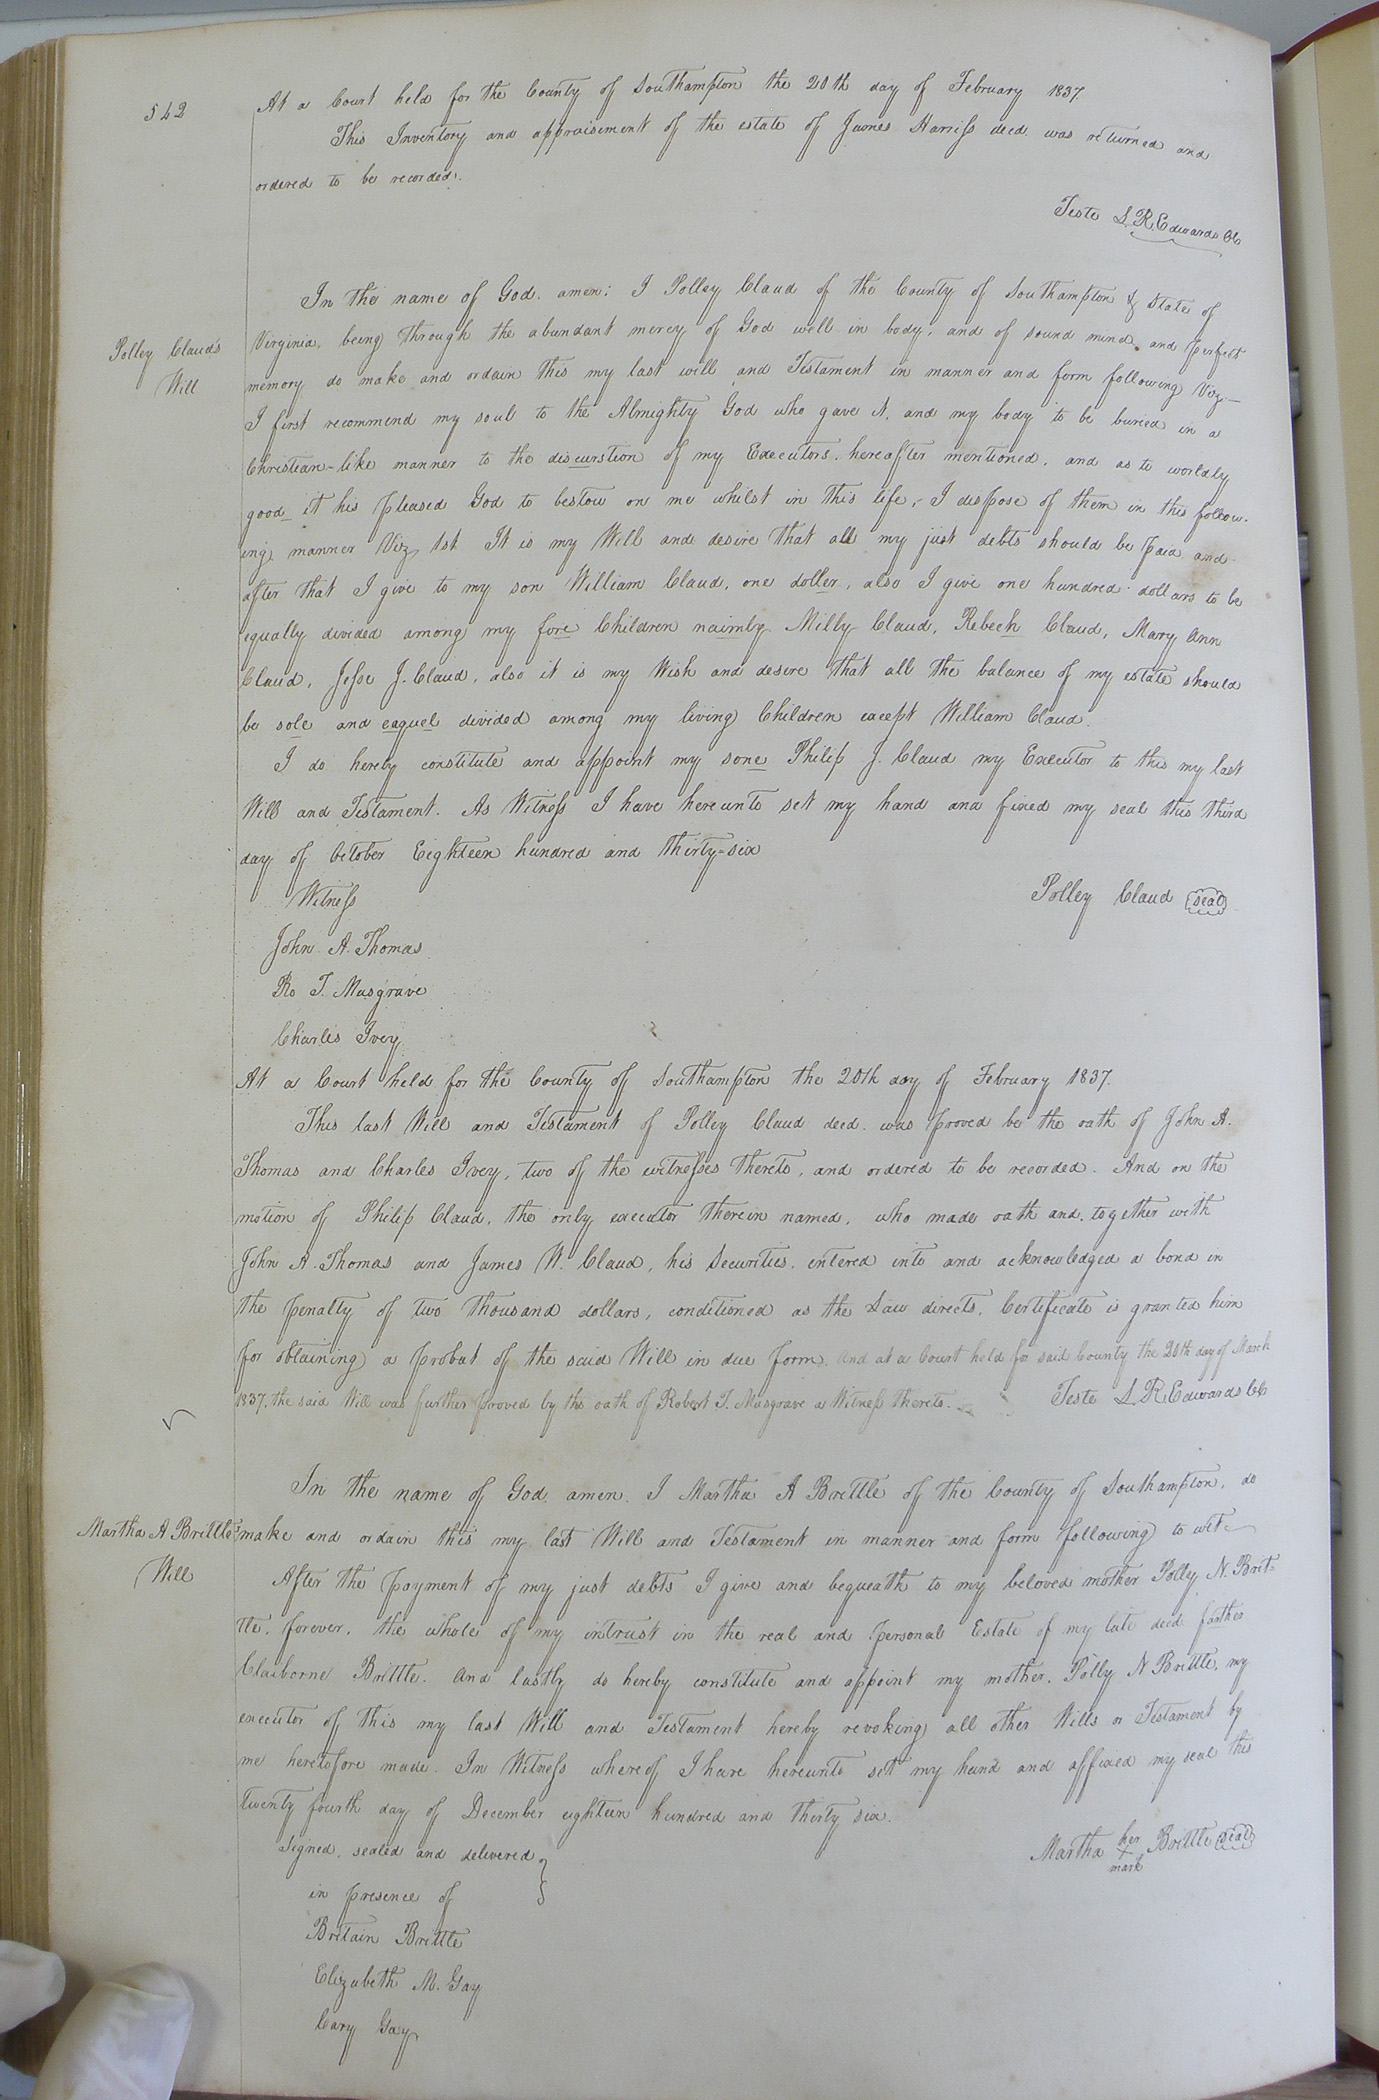 542
At a Court held for the County of Southampton the 20th day of February 1837.
This Inventory and appraisement of the estate of James Harriss decd. was returned and
ordered to be recorded.
Teste L. R. Edwards CC
Polley Clauds
Will
In the name of God. amen: I Polley Claud of the County of Southampton & State of
Virginia, being through the abundant mercy of God well in body, and of sound mind and perfect
memory do make and ordain this my last will and Testament in manner and form following Viz.
I first recommend my soul to the Almighty God who gave it, and my body to be buried in a
Christian-like manner to the discurstion of my Executors. hereafter mentioned, and as to worldly
good it his pleased God to bestow on me whilst in this life, I dispose of them in this follow-
ing manner Viz 1st It is my Will and desire that all my just debts should be paid and
after that I give to my son William Claud, one doller, also I give one hundred dollars to be
equally divided among my fore Children naimly Milly Claud, Rebech Claud, Mary Ann
Claud, Jesse J. Claud, also it is my Wish and desire that all the balance of my estate should
be sole and eaquel divided among my living Children except William Claud.
I do hereby constitute and appoint my sone Philip J. Claud my Executor to this my last
Will and Testament. As Witness I have hereunto set my hand and fixed my seal this third
day of October Eighteen hundred and thirty-six
Witness
Polley Claud seal
John A. Thomas
Ro T. Musgrave
Charles Ivey
At a Court held for the County of Southampton the 20th day of February 1837.
This last Will and Testament of Polley Claud decd. was proved be the oath of John A.
Thomas and Charles Ivey, two of the witnesses thereto, and ordered to be recorded. And on the
motion of Philip Claud, the only executor therein named, who made oath and, together with
John A. Thomas and James W. Claud, his Securities, entered into and acknowledged a bond in
the penalty of two thousand dollars, conditioned as the Law directs, Certificate is granted him
for obtaining a probat of the said Will in due form. And at a Court held for said County the 20th day of March
1837, the said Will was further proved by the oath of Robert T. Musgrave a Witness thereto.
Teste L. R. Edwards CC
Martha A Brittle's
Will
In the name of God, amen. I Martha A Brittle of the County of Southampton, do
make and ordain this my last Will and Testament in manner and form following to wit
After the payment of my just debts I give and bequeath to my beloved mother Polly N. Brit-
tle, forever, the whole of my intrust in the real and personal Estate of my late decd farther
Claiborne Brittle. And lastly do hereby constitute and appoint my mother, Polly N Brittle, my
executor of this my last Will and Testament hereby revoking all other Wills or Testament by
me heretofore made. In Witness whereof I have hereunto set my hand and affixed my seal this
twenty fourth day of December eighteen hundred and thirty six.
Signed, sealed and delivered
Martha her + mark Brittle seal
in presence of
Britain Brittle
Elizabeth M. Gay
Cary Gay